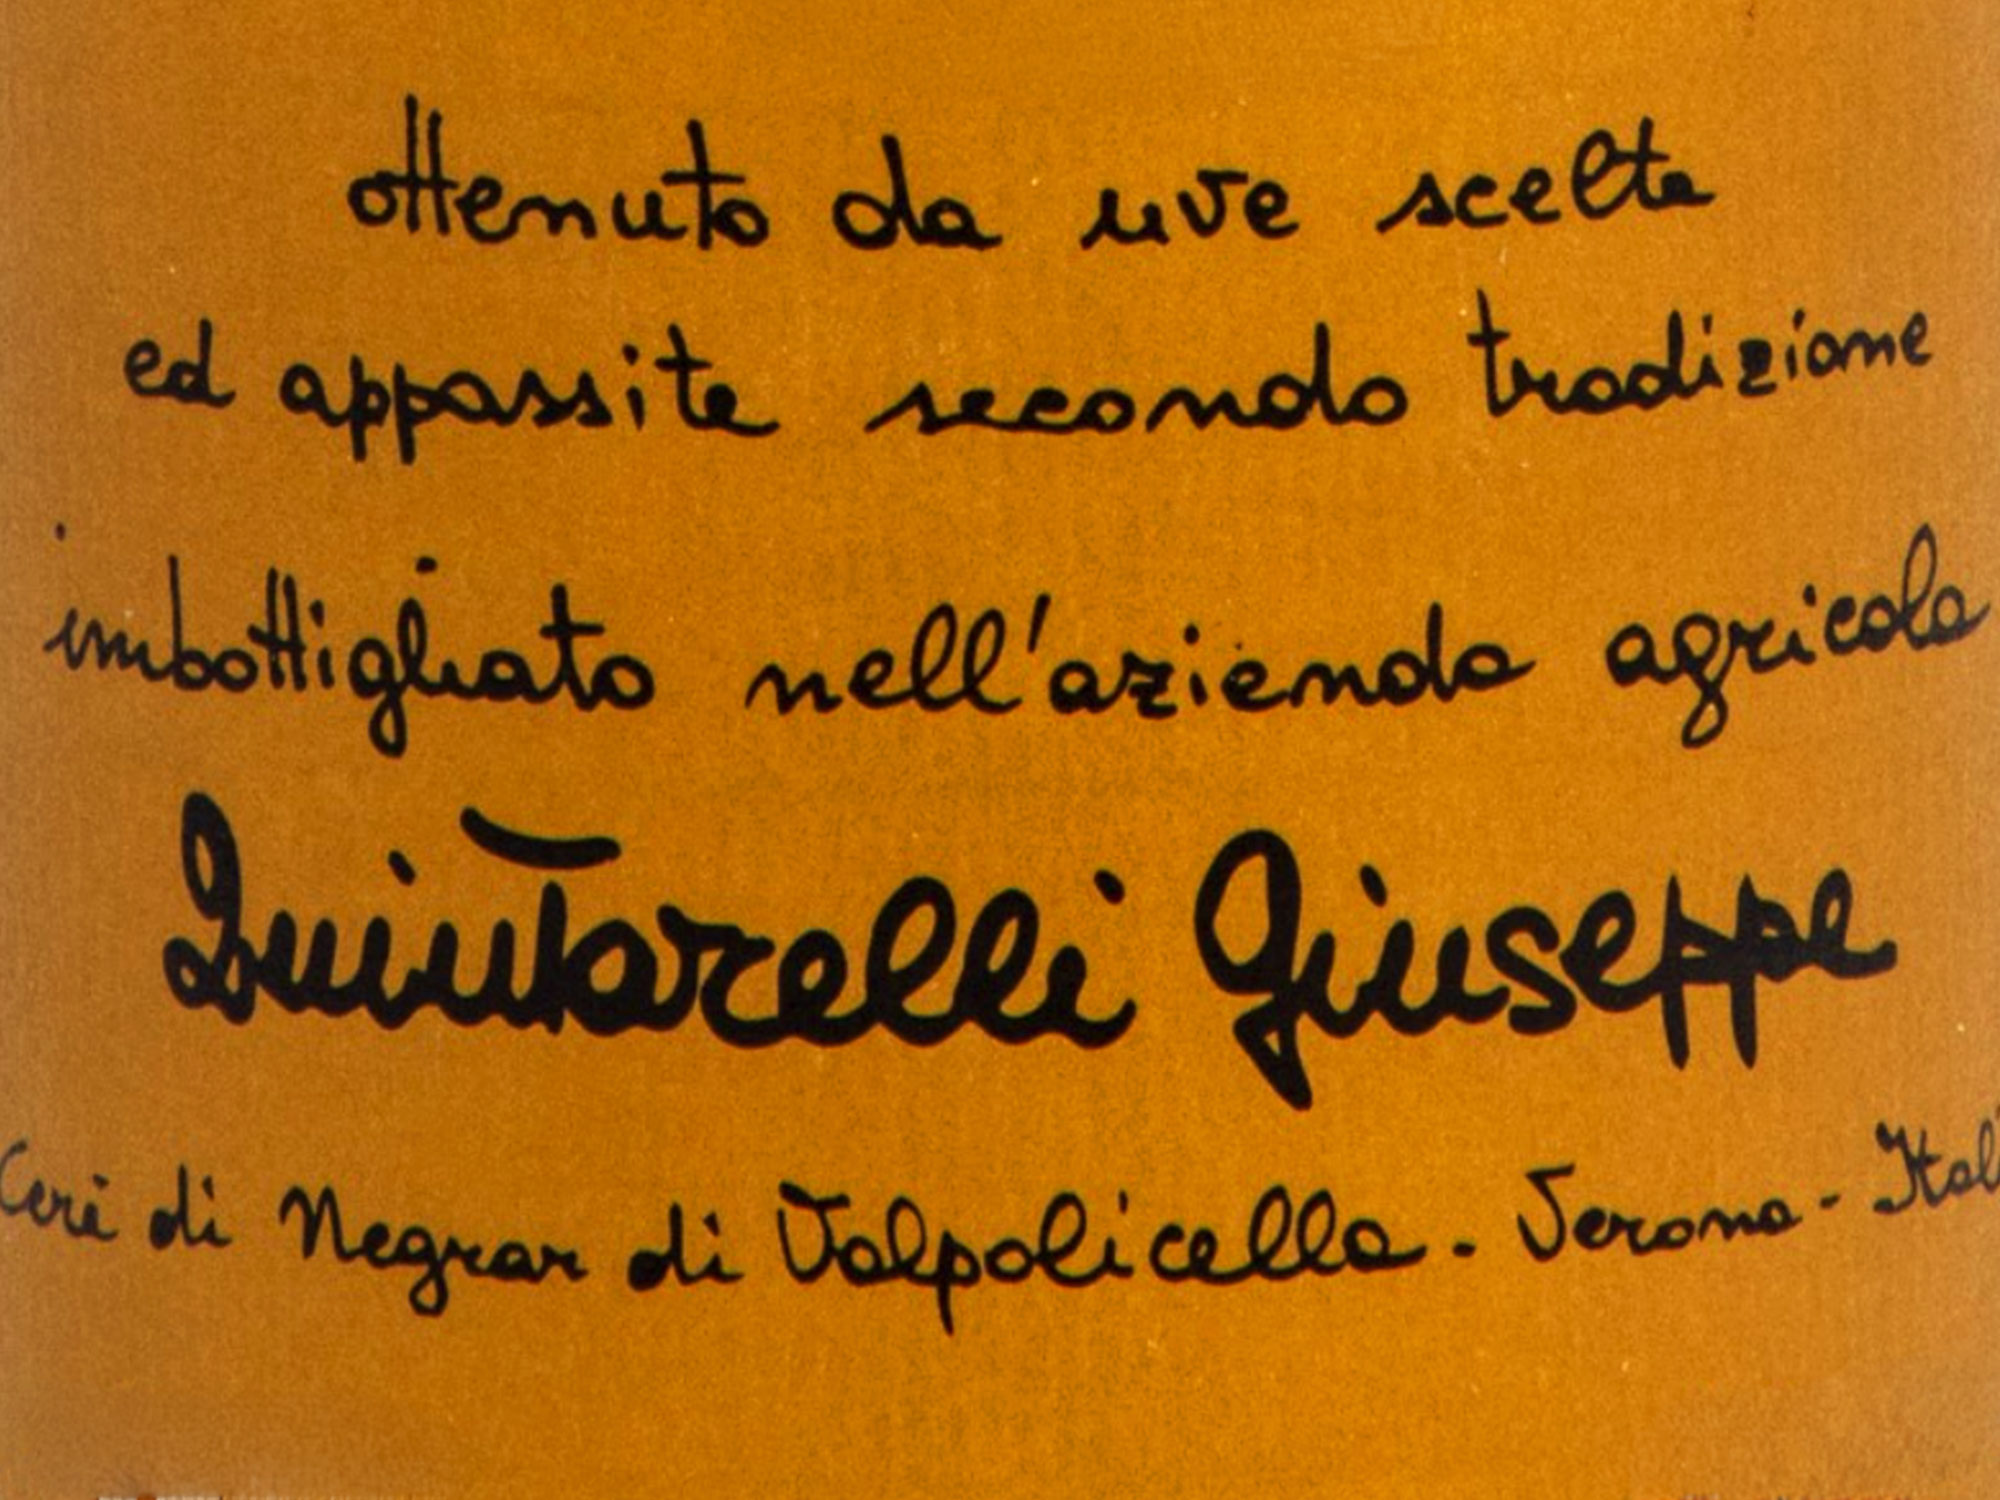 ottenuto da uve scelte
ed appassite secondo tradizione
imbottigliato nell'azienda agricola
Quintarelli Giuseppe
Cerè di Negrar di Valpolicella - Verona - Itali